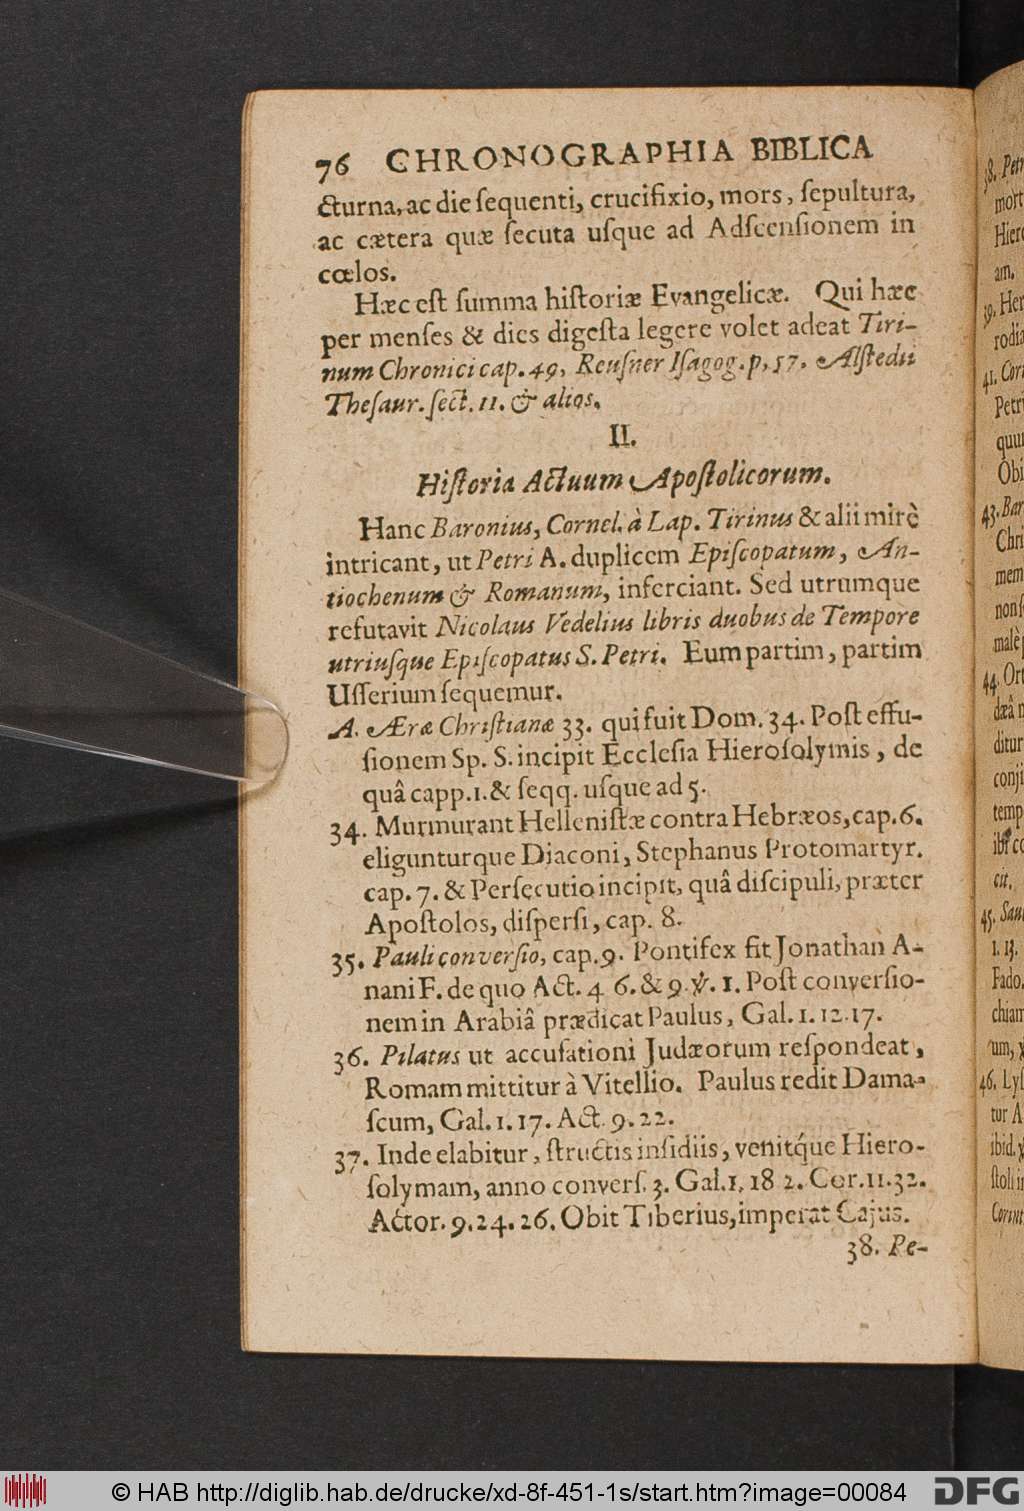 76 CHRONOGRAPHIA BIBLICA
cturna, ac die ſequenti, crucifixio, mors, ſepultura,
ac cætera quæ ſecuta uſque ad Adſcenſionem in
cœlos.
Hæc eſt ſumma hiſtoriæ Evangelicæ. Qui hæc
per menſes & dies digeſta legere volet adeat Tiri-
num Chronici cap. 49, Reuſner Iſagog. p, 57. Alſtedii
Theſaur. ſect. 11. & alios.
II.
Hiſtoria Actuum Apoſtolicorum.
Hanc Baronius, Cornel. à Lap. Tirinus & alii mirè
intricant, ut Petri A. duplicem Epiſcopatum, An-
tiochenum & Romanum, inferciant. Sed utrumque
refutavit Nicolaus Vedelius libris duobus de Tempore
utriuſque Epiſcopatus S. Petri. Eum partim, partim
Uſſerium ſequemur.
A. Æræ Chriſtianæ 33. qui fuit Dom. 34. Poſt effu-
ſionem Sp. S. incipit Eccleſia Hieroſolymis, de
quâ capp. 1. & ſeqq. uſque ad 5.
34. Murmurant Helleniſtæ contra Hebræos, cap. 6.
eligunturque Diaconi, Stephanus Protomartyr.
cap. 7. & Perſecutio incipit, quâ diſcipuli, præter
Apoſtolos, diſperſi, cap. 8.
35. Pauli converſio, cap. 9. Pontifex fit Jonathan A-
nani F. de quo Act. 4 6. & 9. ℣. 1. Poſt converſio-
nem in Arabiâ prædicat Paulus, Gal. 1. 12. 17.
36. Pilatus ut accuſationi Judæorum reſpondeat,
Romam mittitur à Vitellio. Paulus redit Dama-
ſcum, Gal. 1. 17. Act. 9. 22.
37. Inde elabitur, ſtructis inſidiis, venitq́ue Hiero-
ſolymam, anno converſ. 3. Gal. 1, 18 2. Cor. 11. 32.
Actor. 9. 24. 26. Obit Tiberius, imperat Cajus.
38. Pe-
38. Petr
mort
Hiero
am.
39. Her
rodia
41. Cor
Petr
quu
Obi
43. Bar
Chri
mem
non ſ
malè
44. Ort
dæâ
ditur
conji
temp
ibi co
cit.
45. Sau
1. 13.
Fado.
chiam
um,
46. Lyſ
tur A
ibid.
ſtoli i
Corint
© HAB http://diglib.hab.de/drucke/xd-8f-451-1s/start.htm?image=00084
DFG